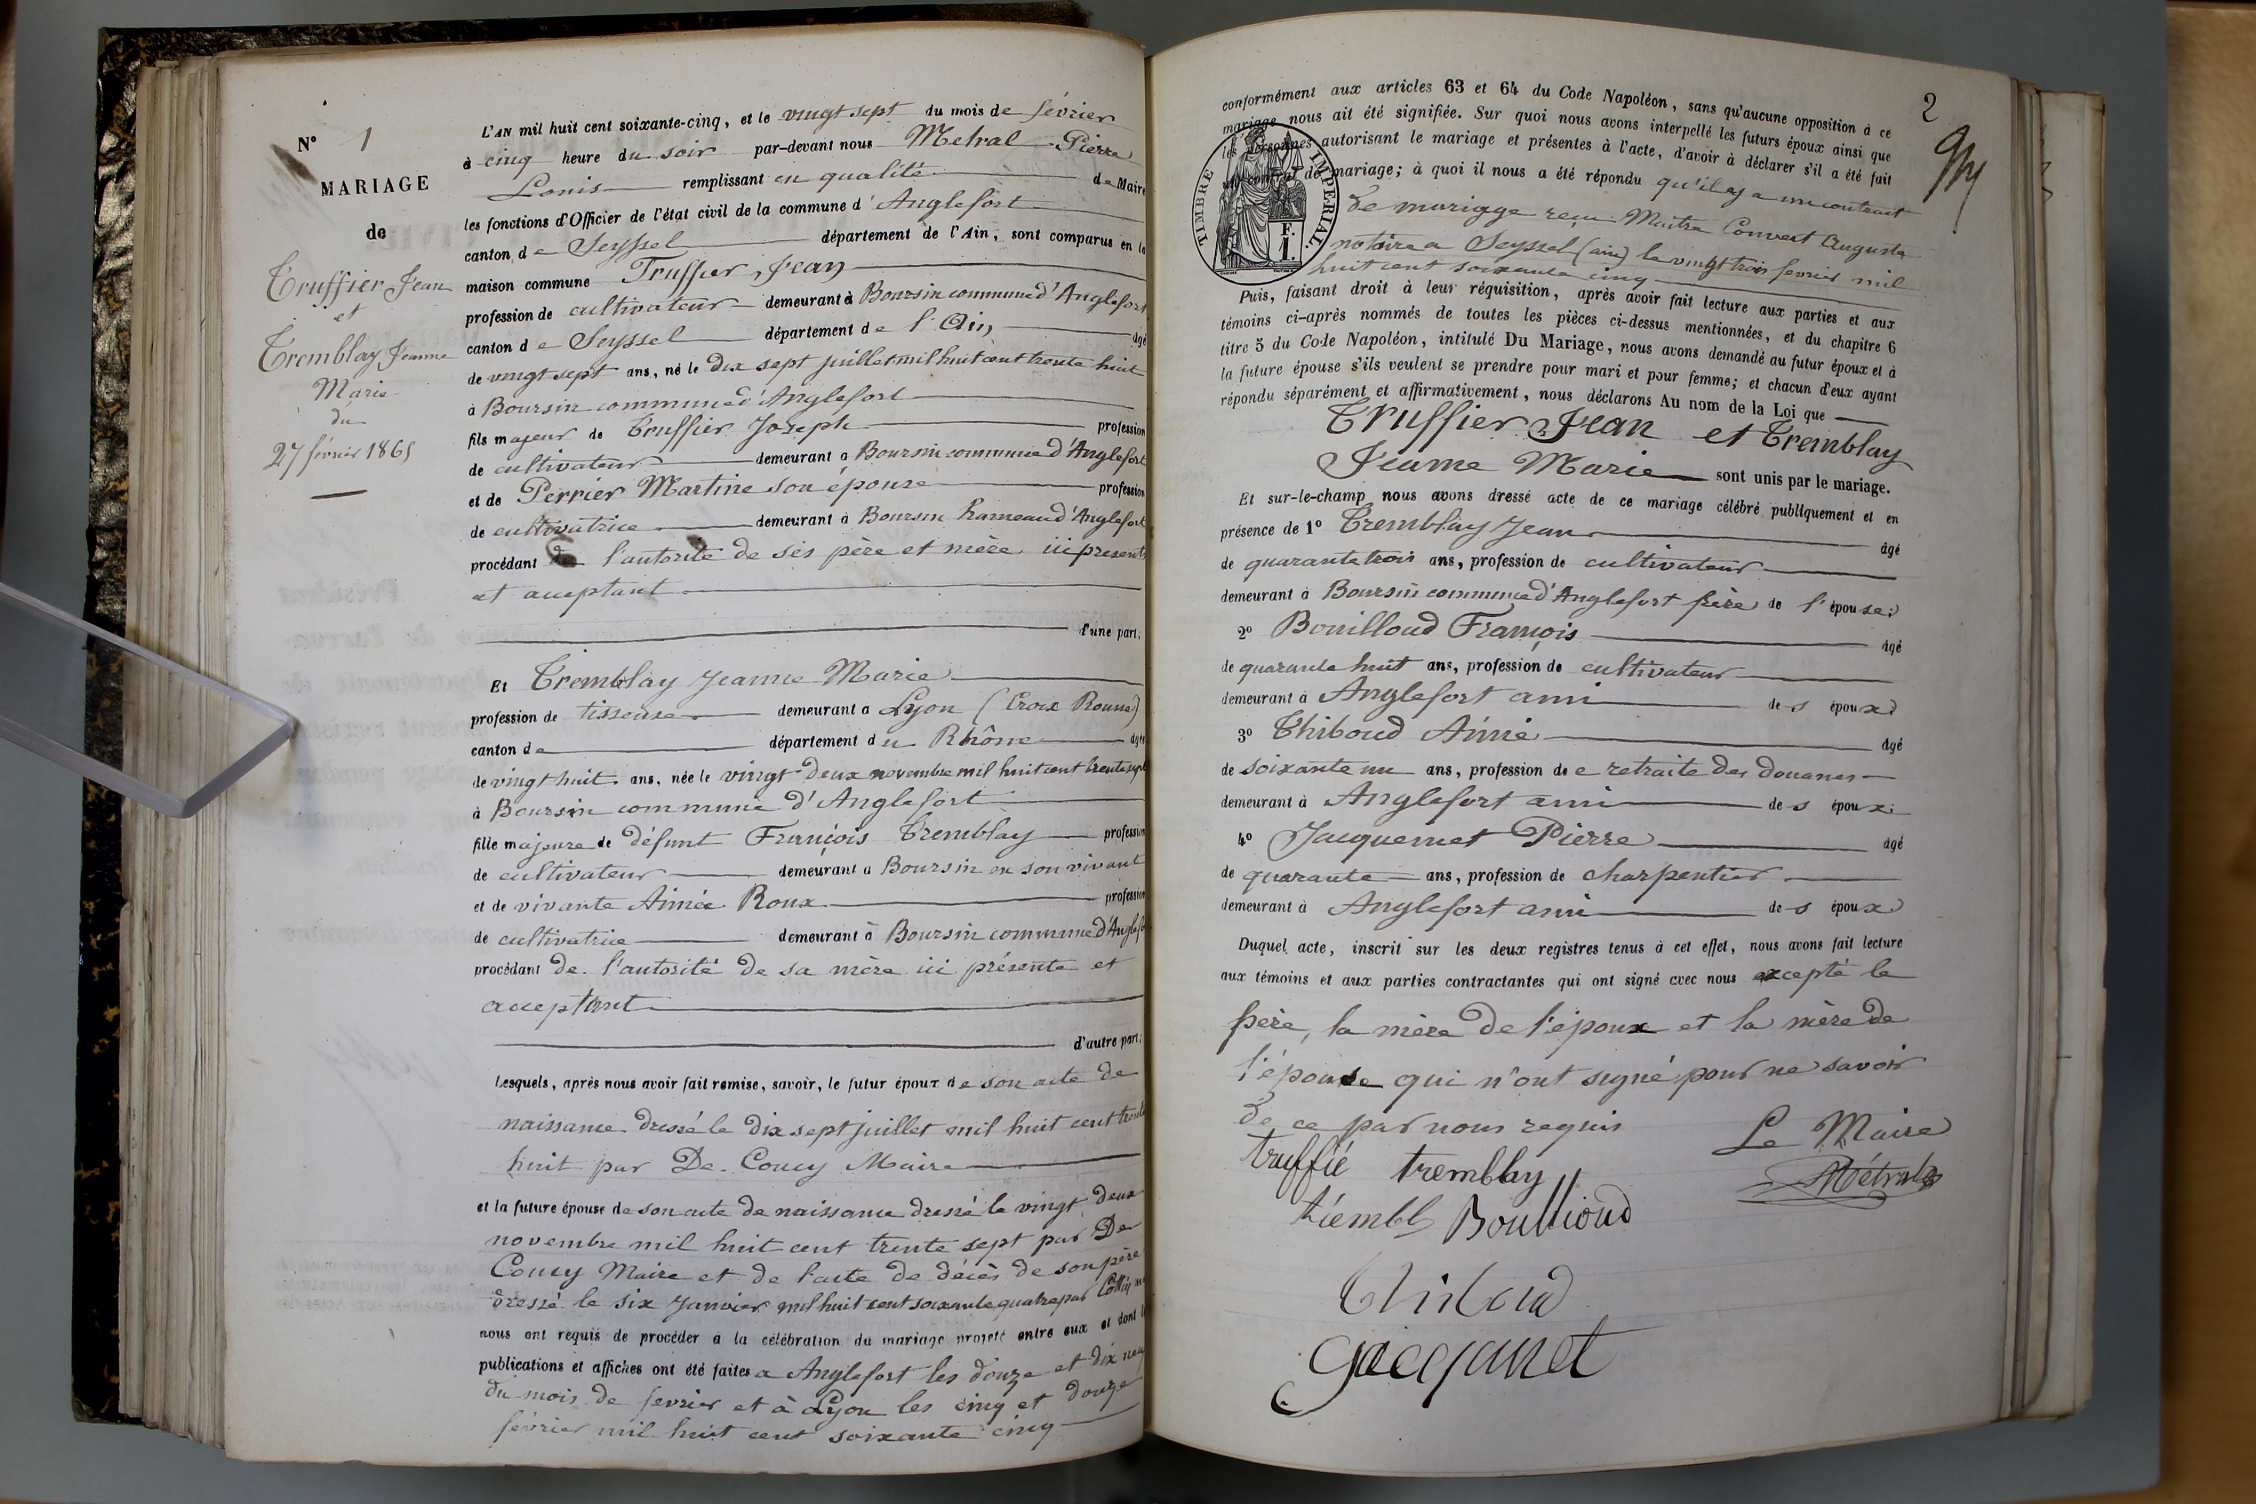 N° 1
MARIAGE
de
Truffier Jean
et
Tremblay Jeanne
Marie
du
27 février 1865
L'AN mil huit cent soixante-cinq, et le vingt sept du mois de février
à cinq heure du soir par-devant nous Metral Pierre
Louis remplissant en qualité de Maire
les fonctions d'Officier de l'état civil de la commune d'Anglefort
canton de Seyssel département de l'Ain, sont comparus en la
maison commune Truffier Jean
profession de cultivateur demeurant à Boursin commune d'Anglefort
canton de Seyssel département de l'Ain, âgé
de vingt sept ans, né le dix sept juillet mil huit cent trente huit
à Boursin commune d'Anglefort
fils majeur de Truffier Joseph profession
de cultivateur demeurant à Boursin commune d'Anglefort
et de Perrier Martine son épouse profession
de cultivatrice demeurant à Boursin hameau d'Anglefort
procédant de l'autorité de ses père et mère ici présents
et acceptant
d'une part;
Et Tremblay Jeanne Marie
profession de tisseuse demeurant à Lyon (Croix Rousse)
canton de département du Rhône âgée
de vingt huit ans, née le vingt deux novembre mil huit cent trente sept
à Boursin commune d'Anglefort
fille majeure de défunt François Tremblay profession
de cultivateur demeurant à Boursin en son vivant
et de vivante Aimée Roux profession
de cultivatrice demeurant à Boursin commune d'Anglefort
procédant de l'autorité de sa mère ici présente et
acceptant
d'autre part;
Lesquels, après nous avoir fait remise, savoir, le futur époux de son acte de
naissance dressé le dix sept juillet mil huit cent trente
huit par De Coucy Maire
et la future épouse de son acte de naissance dressé le vingt deux
novembre mil huit cent trente sept par De
Coucy Maire et de l'acte de décès de son père
dressé le six Janvier mil huit cent soixante quatre par
nous ont requis de procéder à la célébration du mariage projeté entre eux et dont les
publications et affiches ont été faites à Anglefort les douze et dix neuf
du mois de fevrier et à Lyon les cinq et douze
février mil huit cent soixante cinq
2
conformément aux articles 63 et 64 du Code Napoléon, sans qu'aucune opposition à ce
mariage nous ait été signifiée. Sur quoi nous avons interpellé les futurs époux ainsi que
les personnes autorisant le mariage et présentes à l'acte, d'avoir à déclarer s'il a été fait
de mariage; à quoi il nous a été répondu qu'il y a un contrat
de mariage reçu Maitre Convert Auguste
notaire a Seyssel (ain) le vingt trois fevrier mil
huit cent soixante cinq
TIMBRE IMPERIAL.
F.
1.
Puis, faisant droit à leur réquisition, après avoir fait lecture aux parties et aux
témoins ci-après nommés de toutes les pièces ci-dessus mentionnées, et du chapitre 6
titre 5 du Code Napoléon, intitulé Du Mariage, nous avons demandé au futur époux et à
la future épouse s'ils veulent se prendre pour mari et pour femme; et chacun d'eux ayant
répondu séparément et affirmativement, nous déclarons Au nom de la Loi que
Truffier Jean et Tremblay
Jeanne Marie sont unis par le mariage.
Et sur-le-champ nous avons dressé acte de ce mariage célébré publiquement et en
présence de 1° Tremblay Jean âgé
de quarante trois ans, profession de cultivateur
demeurant à Boursin commune d'Anglefort frère de l'épouse;
2° Bouilloud François âgé
de quarante huit ans, profession de cultivateur
demeurant à Anglefort ami des époux;
3° Thiboud Aimé âgé
de soixante un ans, profession de retraite des douanes
demeurant à Anglefort ami des époux;
4° Jacquemet Pierre âgé
de quarante ans, profession de charpentier
demeurant à Anglefort ami des époux
Duquel acte, inscrit sur les deux registres tenus à cet effet, nous avons fait lecture
aux témoins et aux parties contractantes qui ont signé avec nous excepté le
père, la mère de l'époux et la mère de
l'épouse qui n'ont signé pour ne savoir
de ce par nous requis
Le Maire
truffié tremblay
Métral
Boullioud
Thiboud